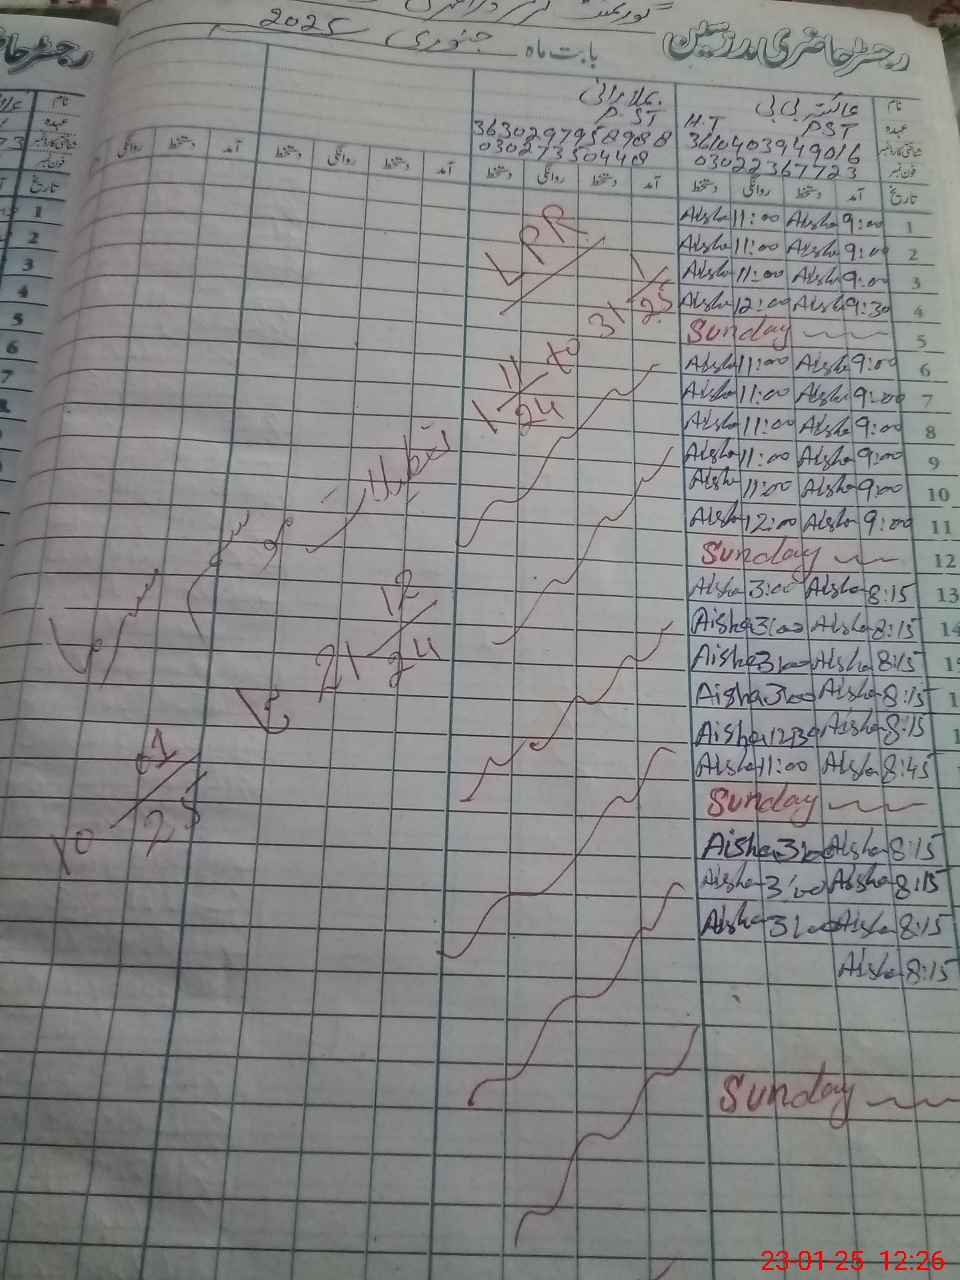 رجسٹر حاضری مدرسین
بابت ماہ جنوری 2025
نام
عہدہ
H.T PST
PST
شناختی کارڈ نمبر 3610403949016
3630297958988
فون نمبر 03022367723
03027350440
تاریخ آمد دستخط روانگی دستخط آمد دستخط روانگی دستخط آمد دستخط روانگی دستخط آمد دستخط روانگی
1 9:00 Aisha 11:00 Aisha
2 9:00 Aisha 11:00 Aisha
3 9:00 Aisha 11:00 Aisha
4 9:30 Aisha 12:00 Aisha
5 Sunday
6 9:00 Aisha 11:00 Aisha
7 9:00 Aisha 11:00 Aisha
8 9:00 Aisha 11:00 Aisha
9 9:00 Aisha 11:00 Aisha
10 9:00 Aisha 11:00 Aisha
11 9:00 Aisha 12:00 Aisha
12 Sunday
13 8:15 Aisha 3:00 Aisha
14 8:15 Aisha 3:00 Aisha
8:15 Aisha 3:00 Aisha
8:15 Aisha 3:00 Aisha
8:15 Aisha 12:30 Aisha
8:45 Aisha 11:00 Aisha
Sunday
8:15 Aisha 3:00 Aisha
8:15 Aisha 3:00 Aisha
8:15 Aisha 3:00 Aisha
8:15 Aisha
Sunday
LPR
1/11/24 to 31/1/25
تعطیلات
21/12/24
1
2
3
4
5
6
7
23-01-25 12:26